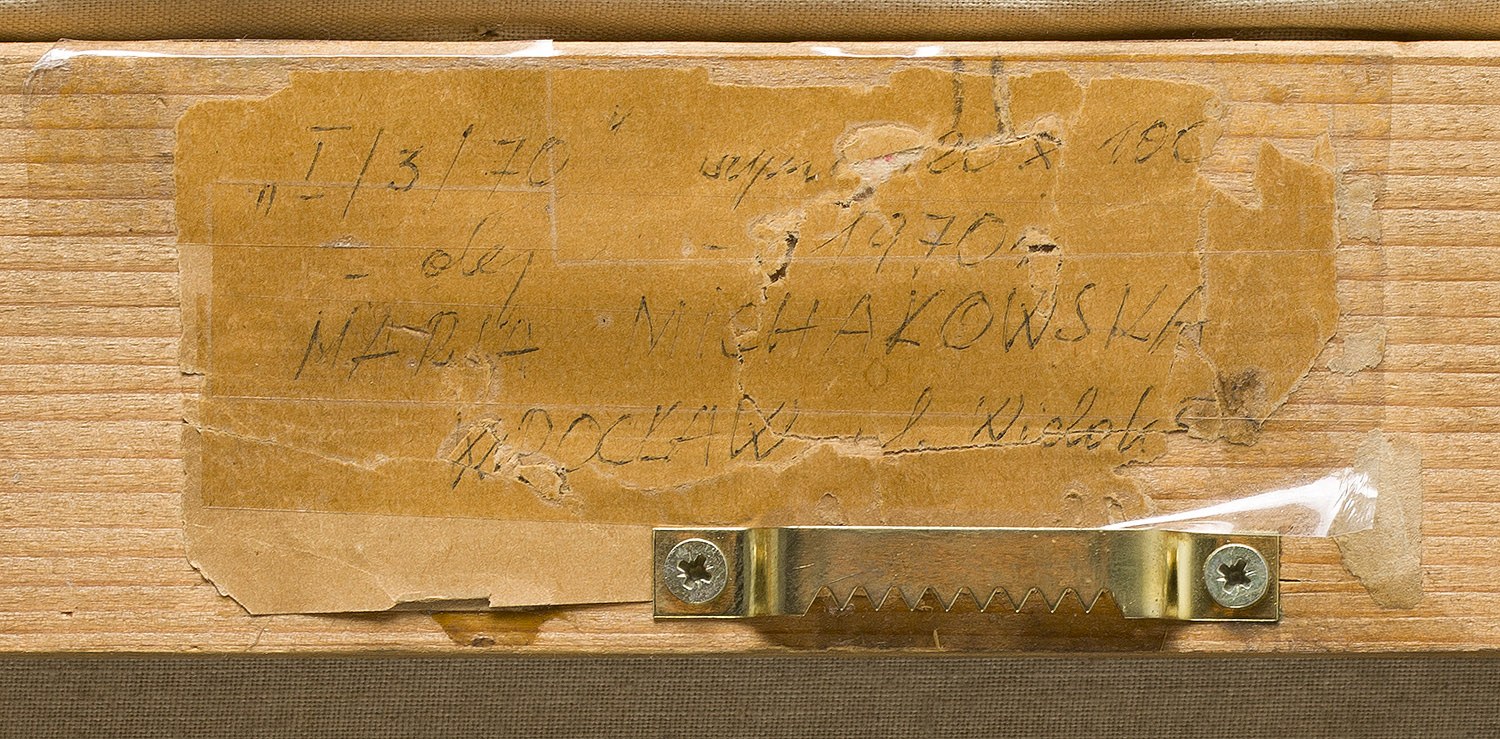 „I/3/70" wym x 100
- olej - 1970r
MARIA MICHAŁOWSKA
WROCŁAW ul.